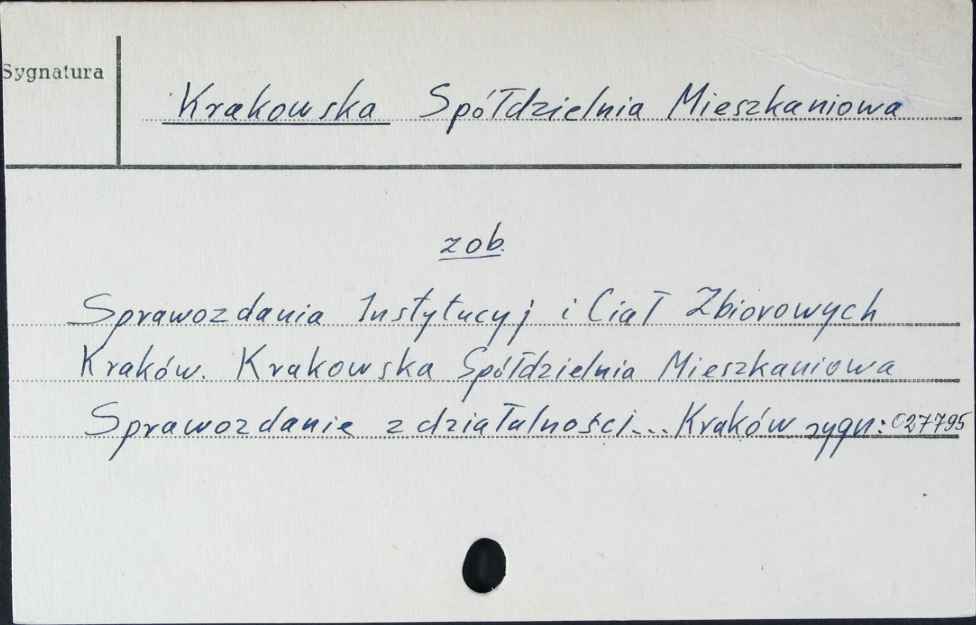 Sygnatura
Krakowska Spółdzielnia Mieszkaniowa
zob.
Sprawozdania Instytucyj i Ciał Zbiorowych
Kraków. Krakowska Spółdzielnia Mieszkaniowa
Sprawozdanie z działalności... Kraków sygn: 027795